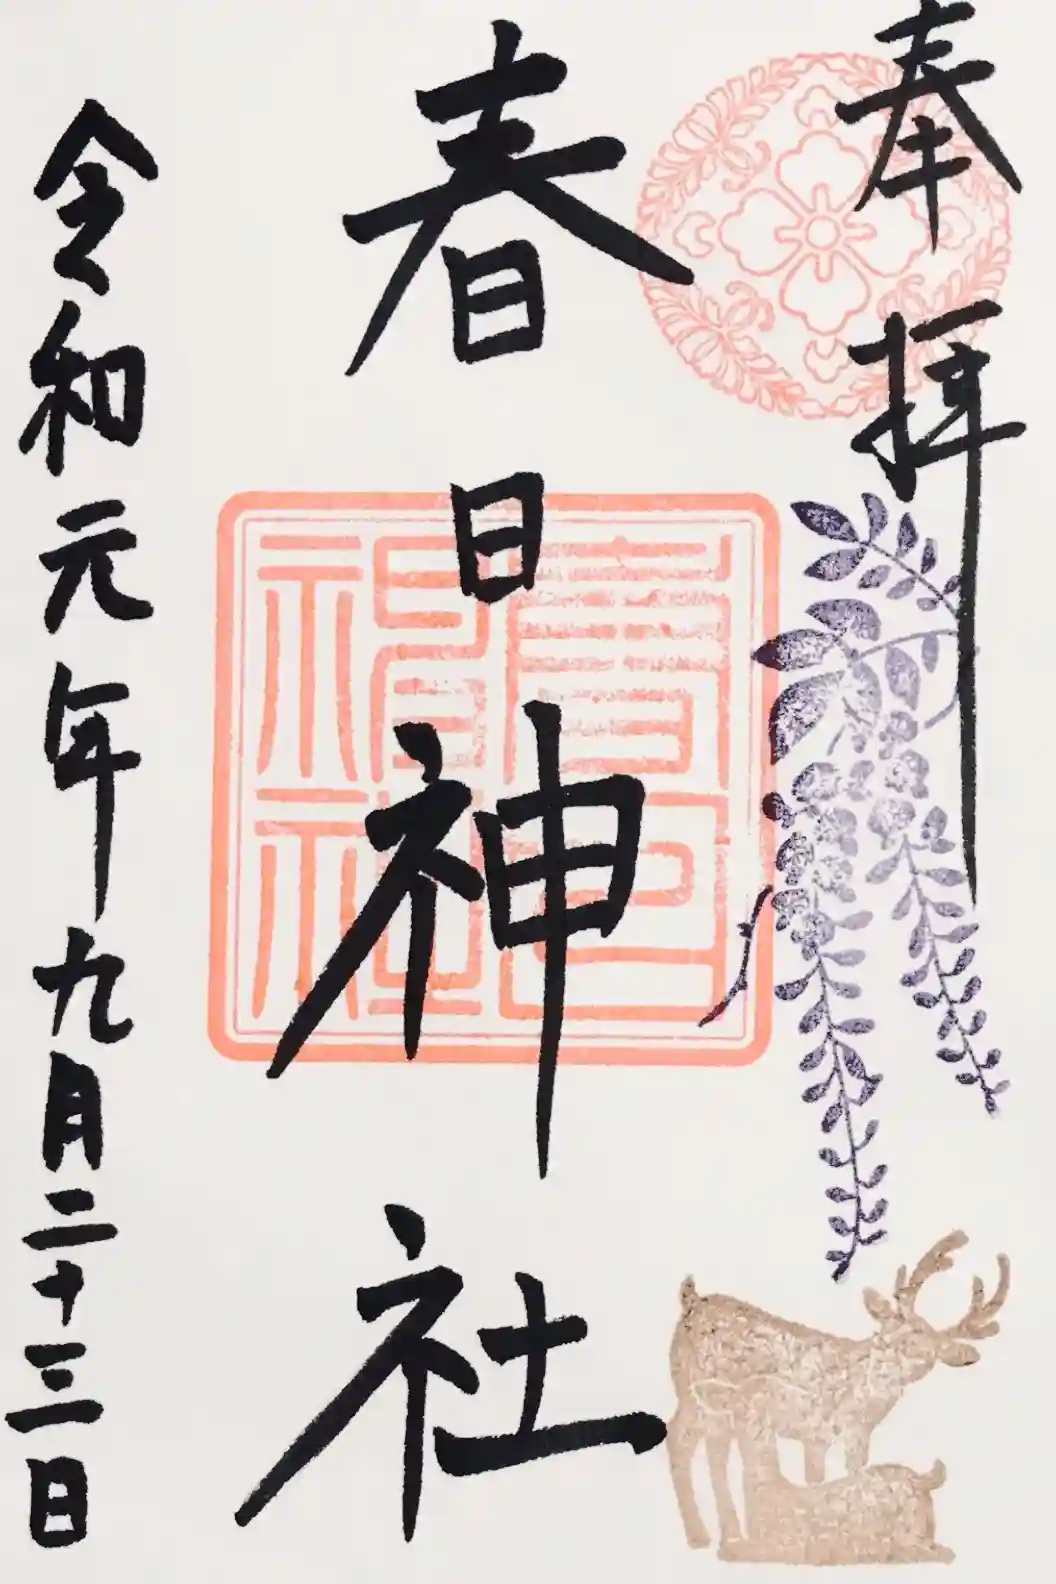 奉拝
春日神社
令和元年九月二十三日
春日神社